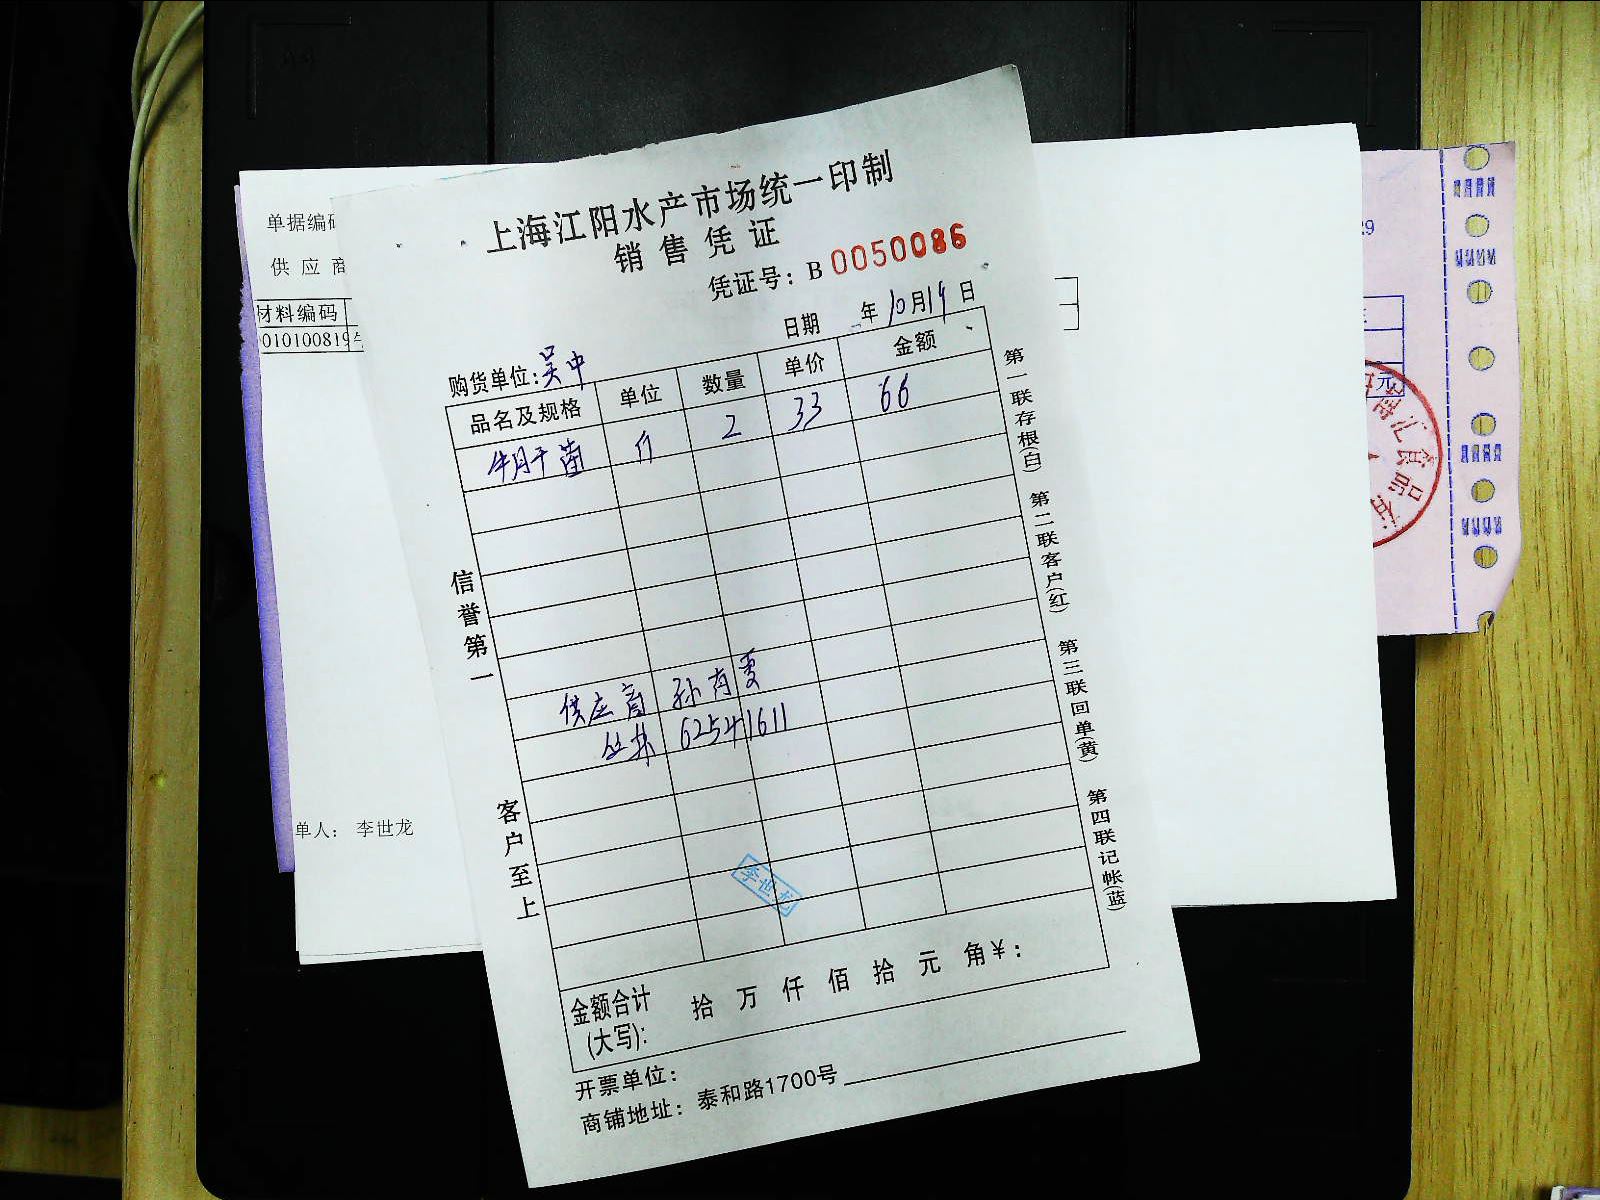 上海江阳水产市场统一印制
销售凭证
凭证号：B 0050086
日期 年10月19日
购货单位：吴中
品名及规格 单位 数量 单价 金额
牛肝菌 斤 2 33 66
供应商 孙
62541611
李世龙
金额合计
(大写)： 拾 万 仟 佰 拾 元 角￥：
开票单位：
商铺地址：泰和路1700号
信誉第一 客户至上
第一联存根(白) 第二联客户(红) 第三联回单(黄) 第四联记帐(蓝)
单据编码
供应商
材料编码
010100819
单人： 李世龙
29
元
汇食品有